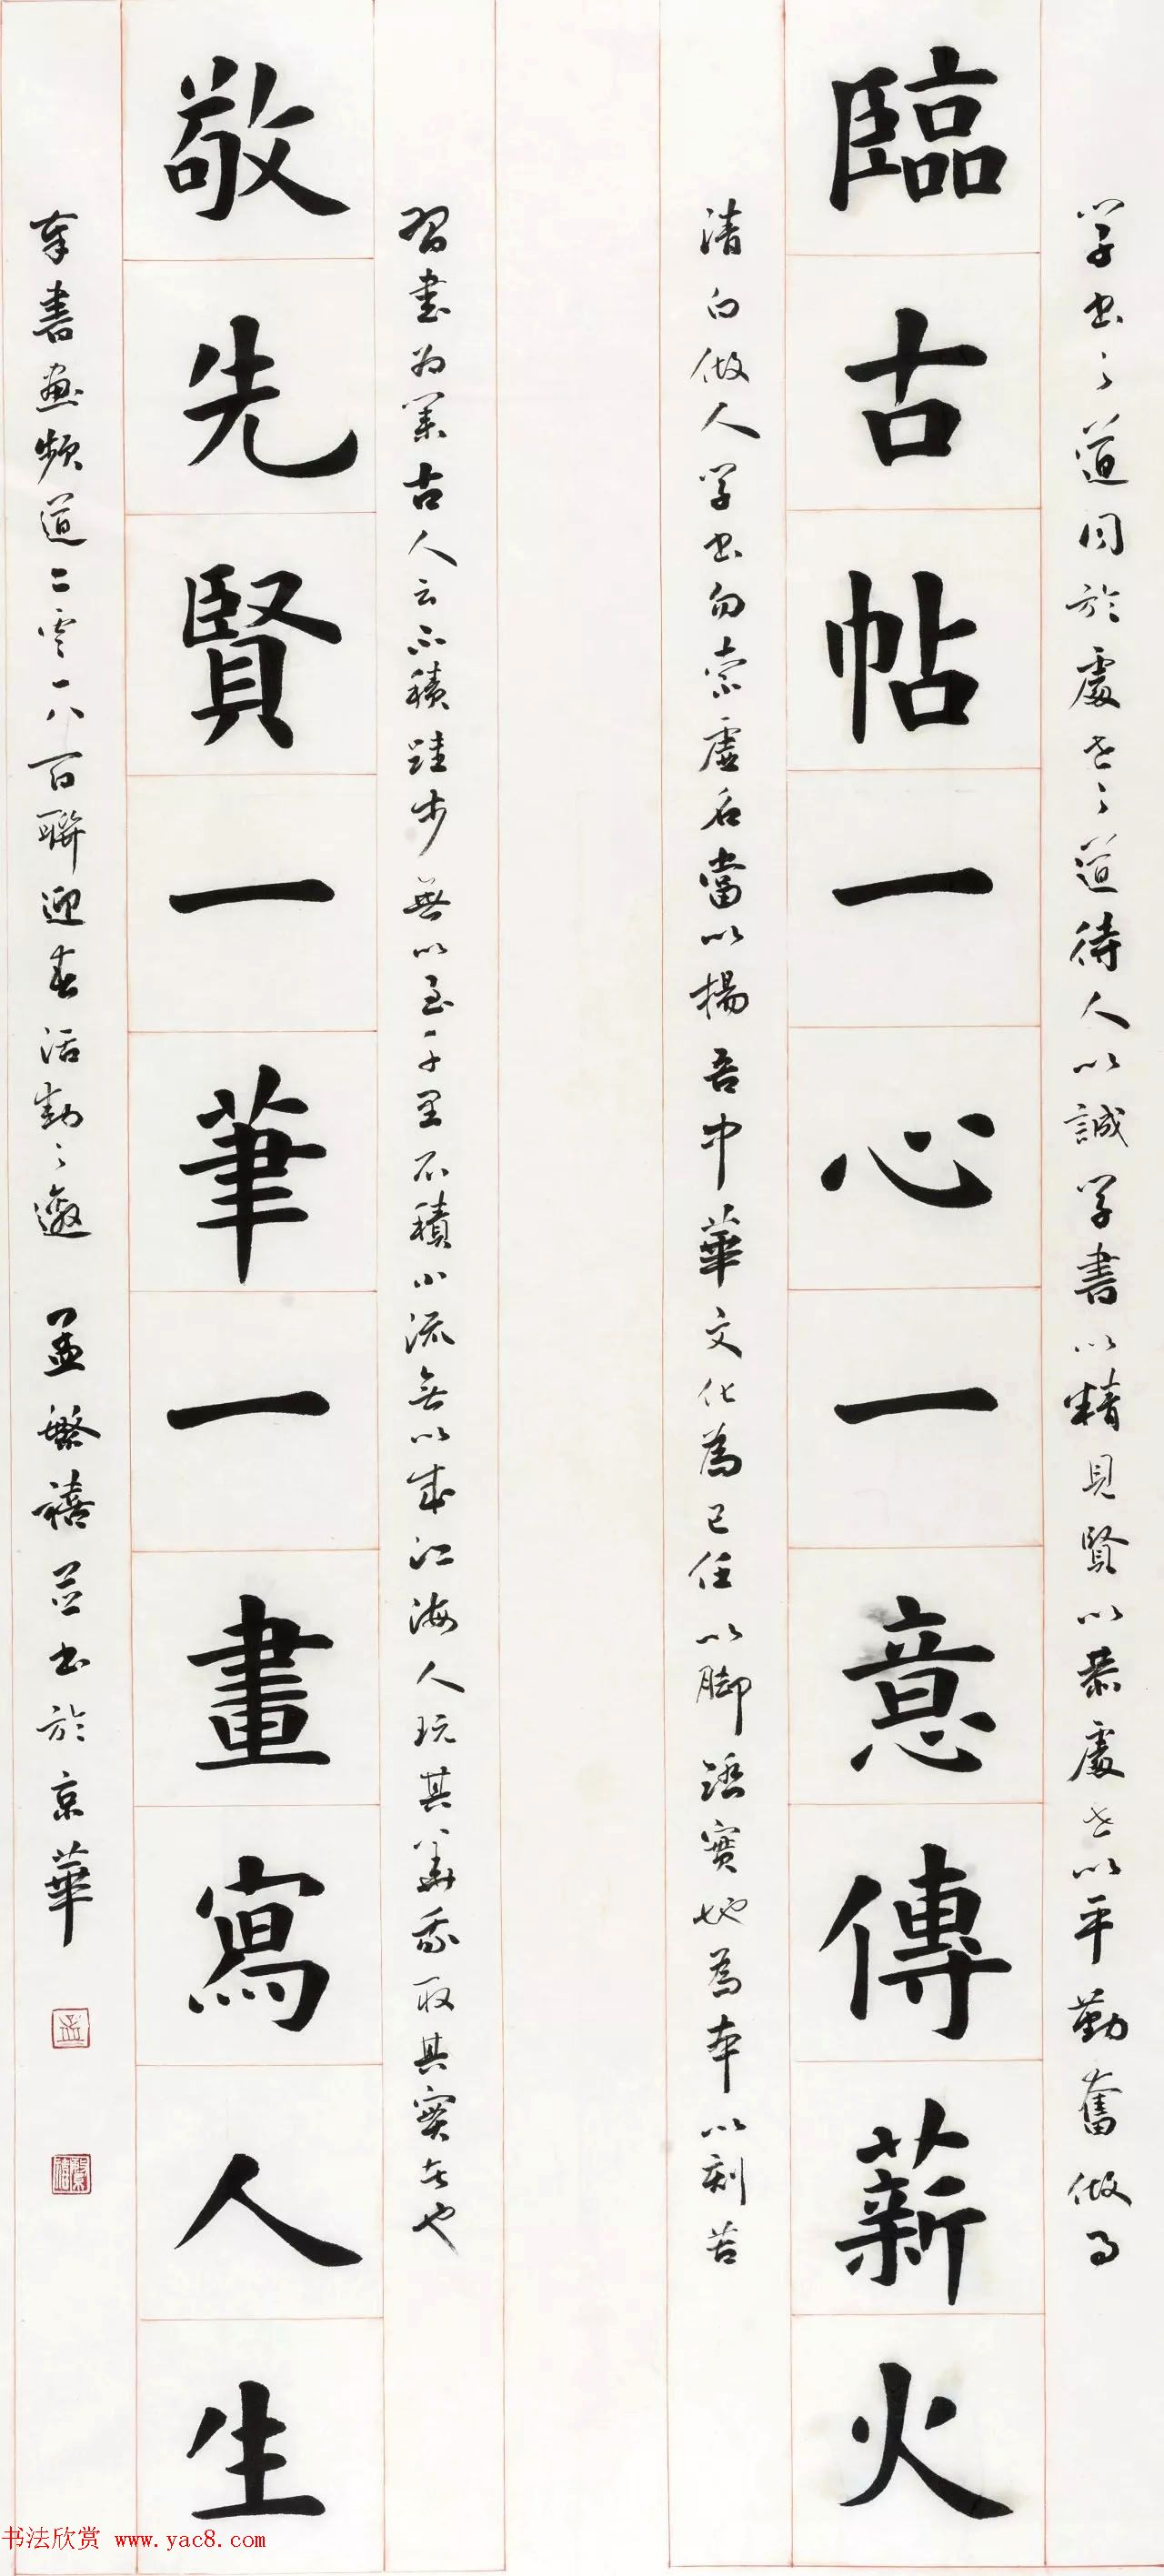 學書之道同於處世之道待人以誠學書以精見賢以恭處世以平勤奮做事
臨古帖一心一意傳薪火
清白做人學書勿索虛名當以楊吾中華文化為己任以脚踏實地為本以刻苦
習書為業古人云不積跬步無以至千里不積小流無以成江海人玩其華我取其實是也
敬先賢一筆一畫寫人生
奉書畫頻道二零一八百聯迎春活動之邀 孟繁禧並書於京華
孟
繁禧
书法欣赏 www.yac8.com